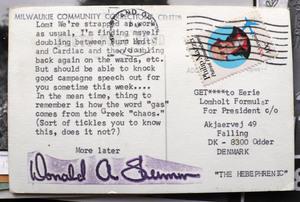 MILWAUKEE COMMUNITY CORRECTIONS CENTER
Lom: We're strapped at work
as usual, I'm finding myself
doubling between Burn Unit
and Cardiac and then doubling
back again on the wards, etc.
But should be able to knock
good campaign speech out for
you sometime this week....
In the mean time, thing to
remember is how the word "gas"
comes from the Greek "chaos."
(Sort of tickles you to know
this, does it not?)
More later
Donald A
GET****to Eerie
Lomholt Formular
For President c/o
Akjaervej 49
Falling
DK - 8300 Odder
DENMARK
"THE HEBEPHRENIC"